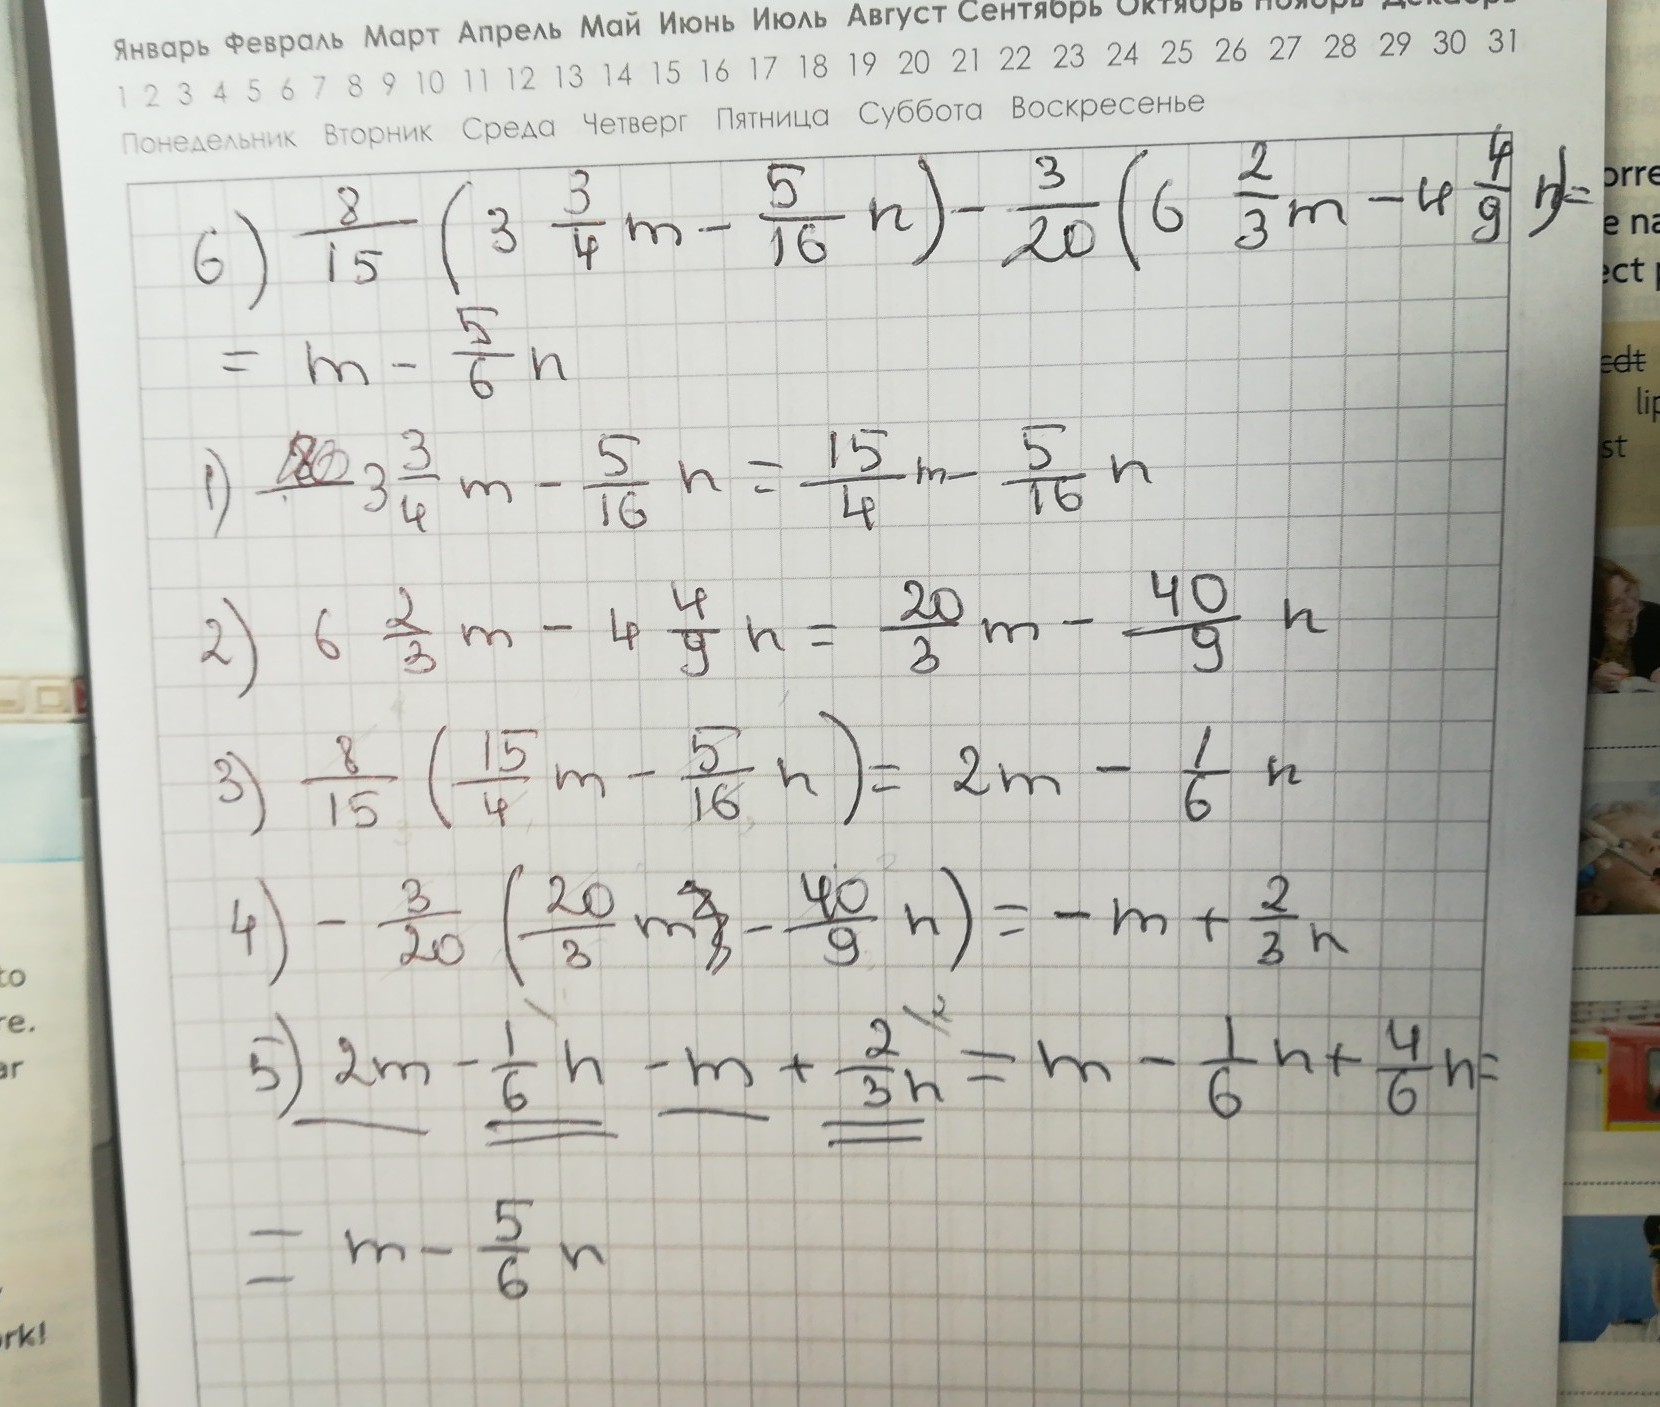 Январь Февраль Март Апрель Май Июнь Июль Август Сентябрь Октябрь Ноябрь Декабрь
1 2 3 4 5 6 7 8 9 10 11 12 13 14 15 16 17 18 19 20 21 22 23 24 25 26 27 28 29 30 31
Понедельник Вторник Среда Четверг Пятница Суббота Воскресенье
6) 8/15 (3 3/4 m - 5/16 n) - 3/20 (6 2/3 m - 4 4/9 n) =
= m - 5/6 n
1) 3 3/4 m - 5/16 n = 15/4 m - 5/16 n
2) 6 2/3 m - 4 4/9 n = 20/3 m - 40/9 n
3) 8/15 (15/4 m - 5/16 n) = 2m - 1/6 n
4) - 3/20 (20/3 m - 40/9 n) = - m + 2/3 n
5) 2m - 1/6 n - m + 2/3 n = m - 1/6 n + 4/6 n =
= m - 5/6 n
to
re.
ar
ork!
orre
e na
ect p
edt
lip
st